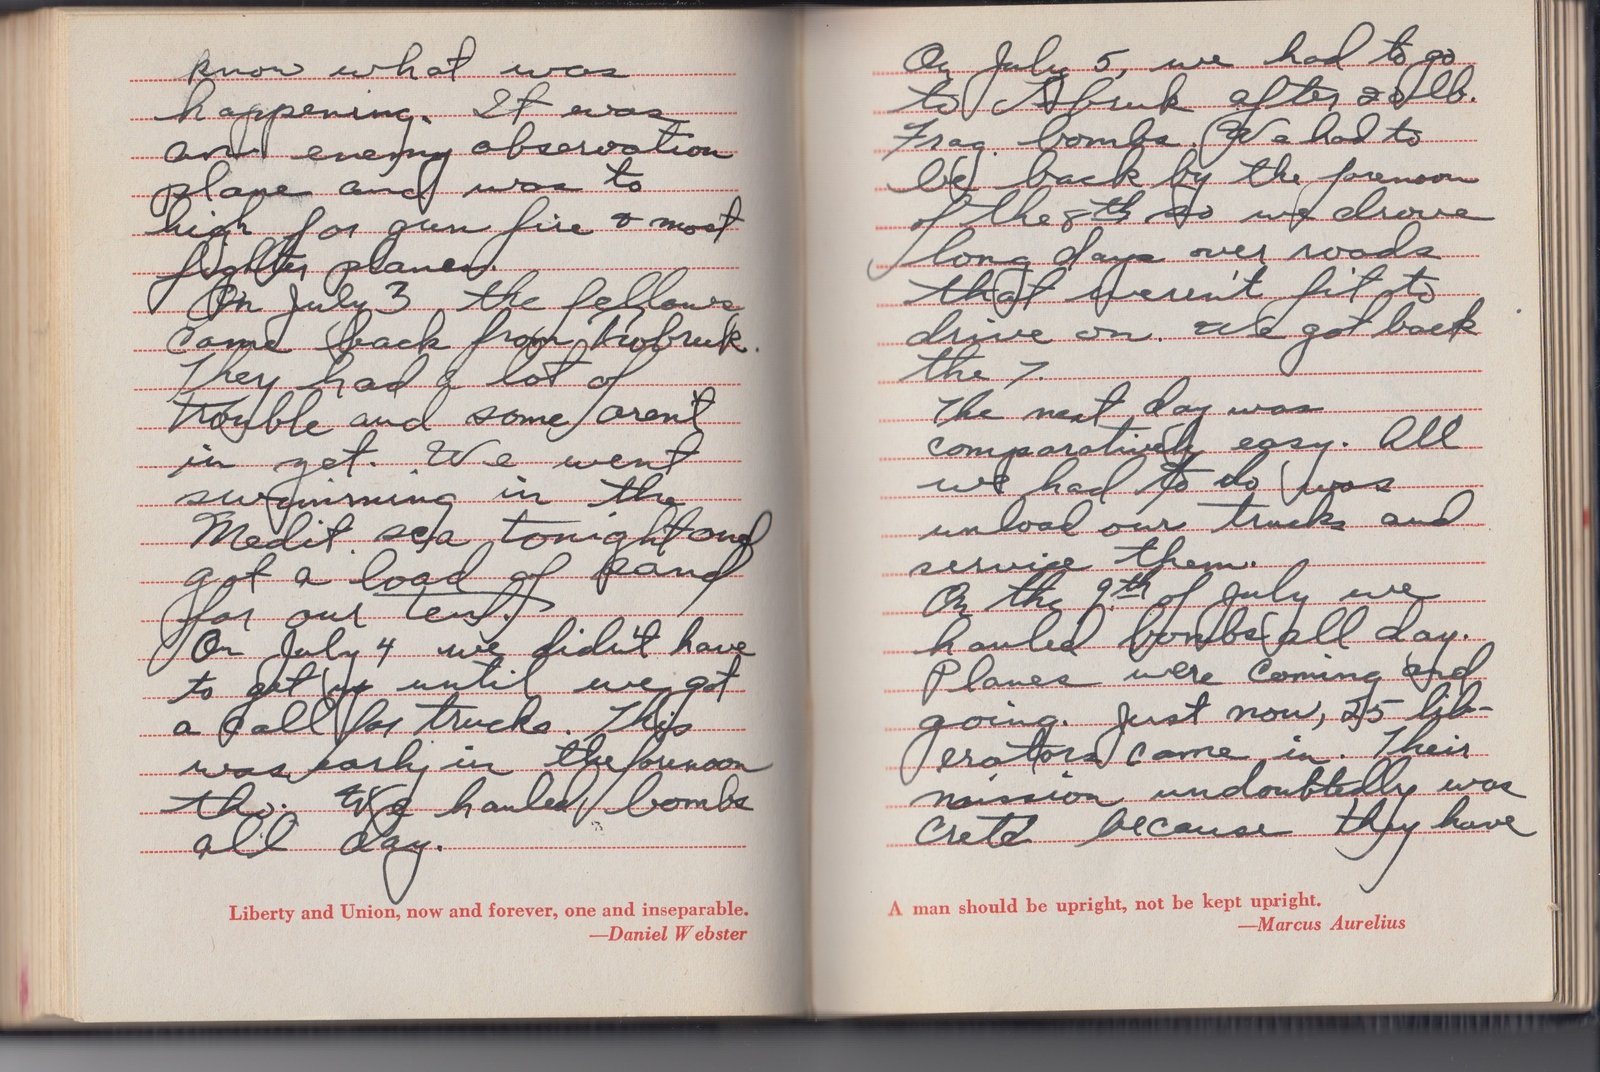 know what was
happening. It was
an enemy observation
plane and was to
high for gun fire & most
fighter planes.
On July 3 the fellows
came back from Twobruk.
They had a lot of
trouble and some aren't
in yet. We went
swimming in the
Medit. sea tonight and
got a load of sand
for our tent.
On July 4 we didn't have
to get up until we got
a call for trucks. This
was early in the forenoon
tho. We hauled bombs
all day.
Liberty and Union, now and forever, one and inseparable.
—Daniel Webster
On July 5, we had to go
to Tobruk after 20 lb.
Frag. bombs. We had to
be back by the forenoon
of the 8th so we drove
long days over roads
that weren't fit to
drive on. We got back
the 7.
The next day was
comparatively easy. All
we had to do was
unload our trucks and
service them.
On the 9th of July we
hauled bombs all day.
Planes were coming and
going. Just now, 25 lib-
erators came in. Their
mission undoubtedly was
Crete because they have
A man should be upright, not be kept upright.
—Marcus Aurelius